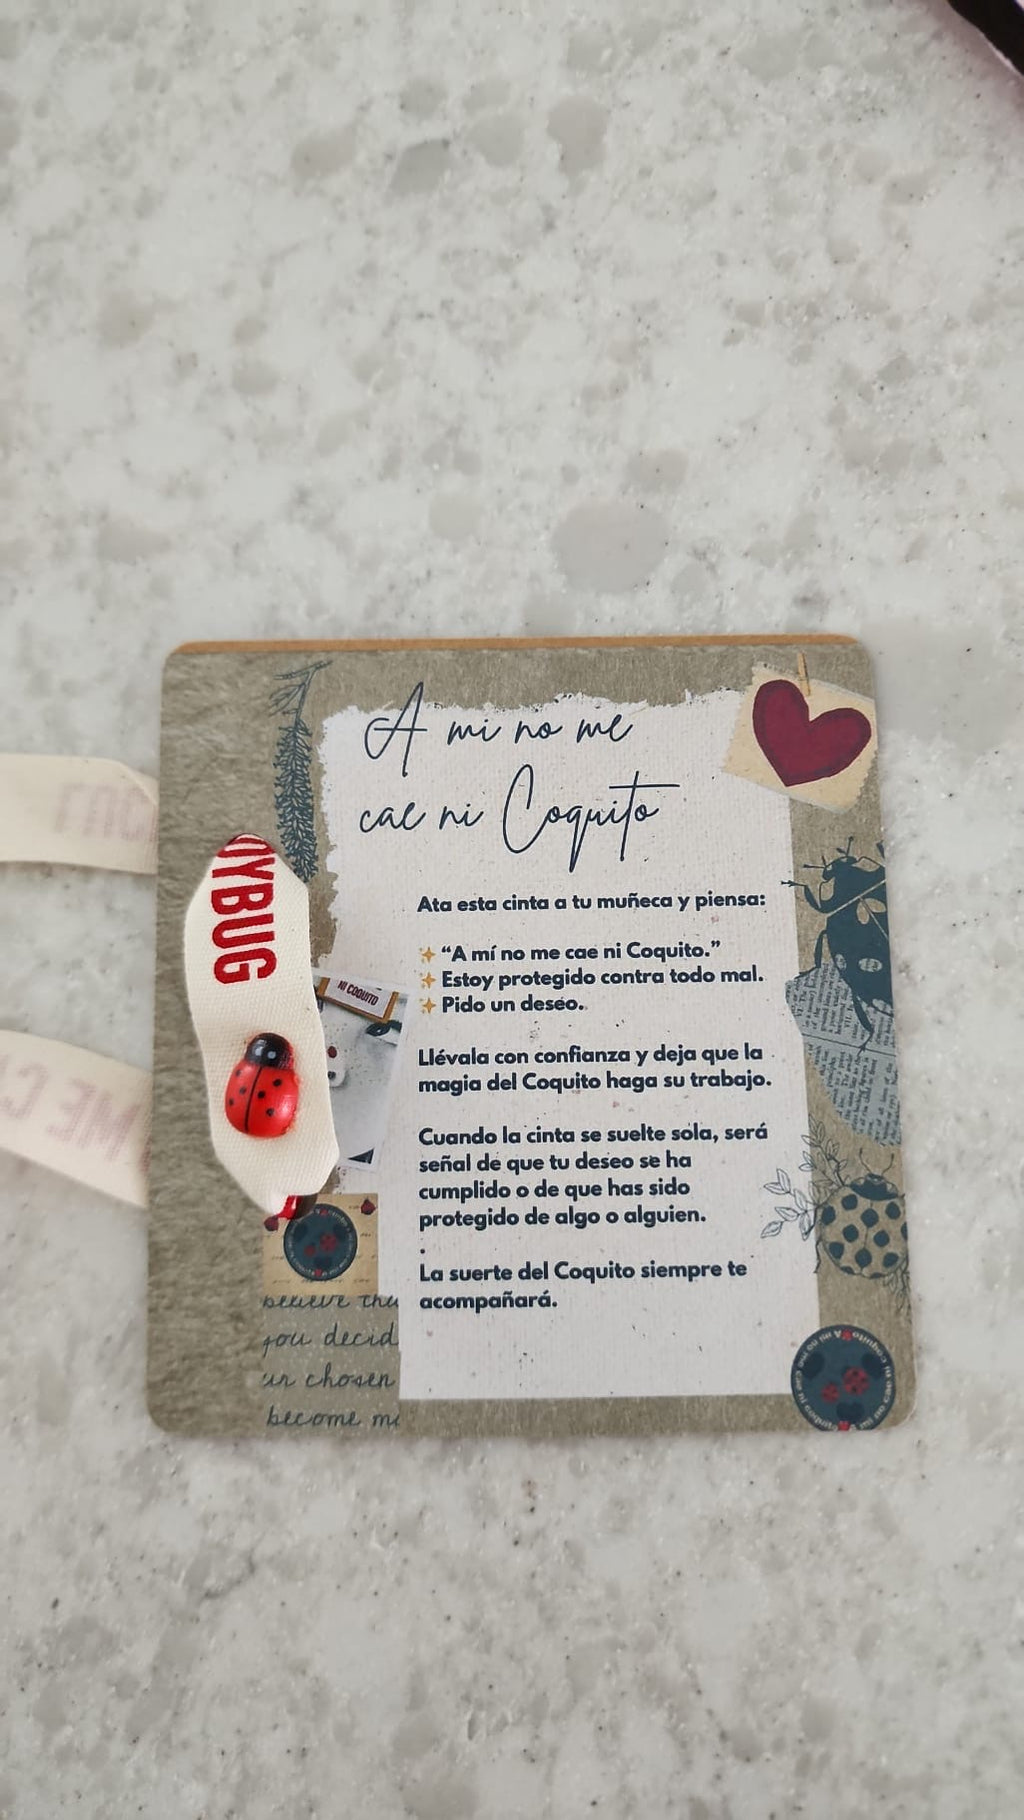 A mi no me
cae ni Coquito
Ata esta cinta a tu muñeca y piensa:
✨ “A mí no me cae ni Coquito.”
✨ Estoy protegido contra todo mal.
✨ Pido un deseo.
Llévala con confianza y deja que la
magia del Coquito haga su trabajo.
Cuando la cinta se suelte sola, será
señal de que tu deseo se ha
cumplido o de que has sido
protegido de algo o alguien.
.
La suerte del Coquito siempre te
acompañará.
YBUG
NI COQUITO
believe
you decid
chosen
become
ME